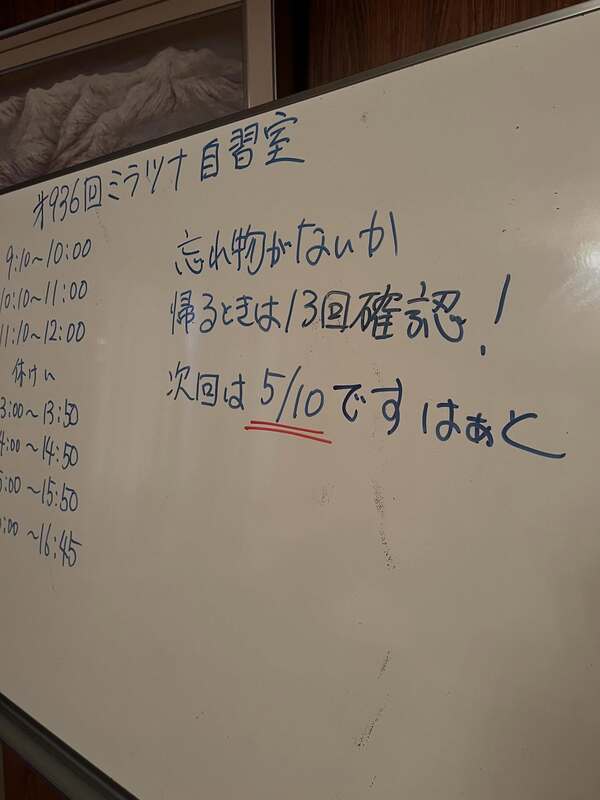 第936回ミラツナ自習室
9:10~10:00
10:10~11:00
11:10~12:00
休けい
3:00~13:50
4:00~14:50
5:00~15:50
:00~16:45
忘れ物がないか
帰るときは13回確認!
次回は5/10ですはぁと